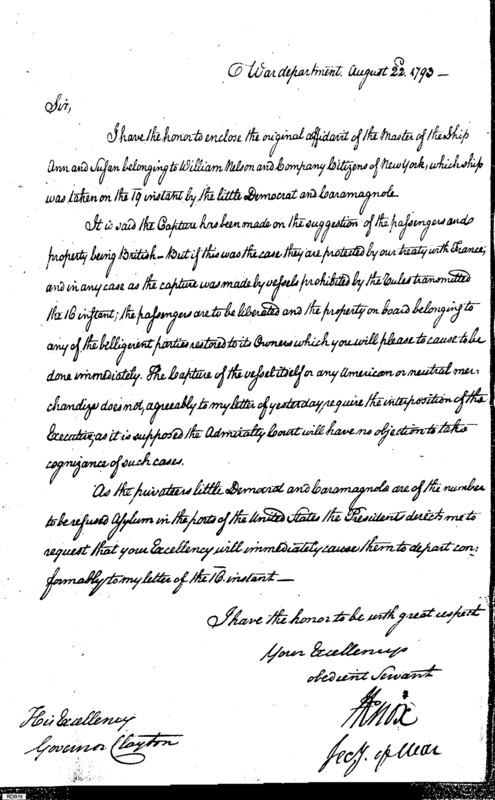 War department. August 22. 1793 —
Sir,
I have the honor to enclose the original affidavit of the Master of the Ship
Ann and Susan belonging to William Nelson and Company Citizens of New York, which ship
was taken on the 19 instant by the little Democrat and Caramagnole.
It is said the Capture has been made on the suggestion of the passengers and
property being British — But if this was the case they are protected by our treaty with France;
and in any case as the capture was made by vessels prohibited by the Rules transmitted
the 16 instant; the passengers are to be liberated and the property on board belonging to
any of the belligerent parties restored to its Owners which you will please to cause to be
done immediately. The Capture of the vessel itself or any American or neutral mer-
chandize does not, agreeably to my letter of yesterday, require the interposition of the
Executive, as it is supposed the Admiralty Court will have no objection to take
cognizance of such cases.
As the privateers little Democrat and Caramagnole are of the number
to be refused Asylum in the ports of the United States the President directs me to
request that your Excellency will immediately cause them to depart con-
formably to my letter of the 16. instant —
I have the honor to be with great respect
Your Excellencys
obedient Servant
HKnox
Secy. of War
His Excellency
Governor Clayton